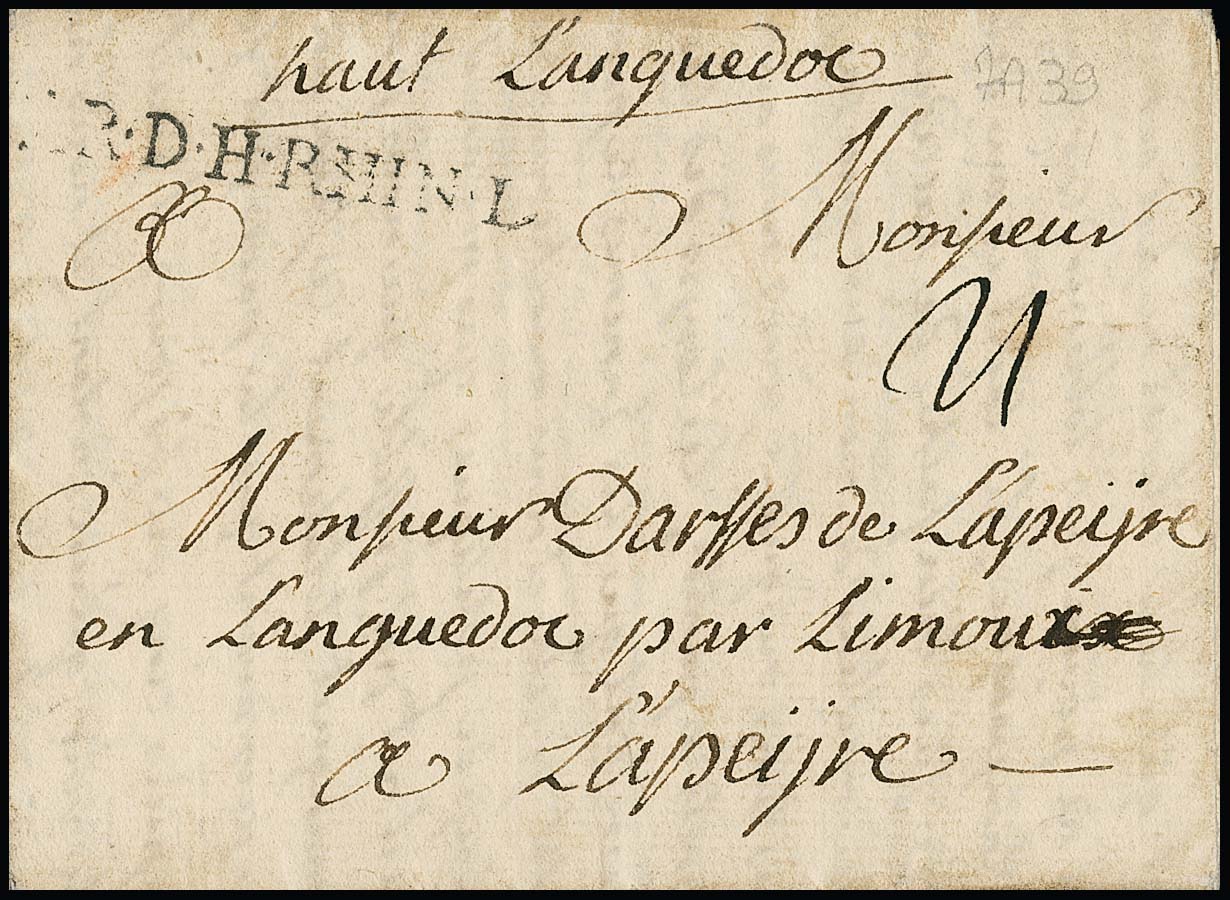 haut Languedoc
AR·D·H·RHIN·L
A Monsieur
Monsieur Darsses de Lapeijre
en Languedoc par Limoux
a Lapeijre